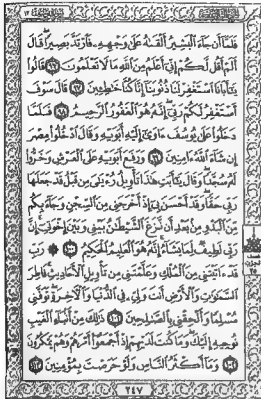 فَلَمَّآ أَن جَآءَ ٱلْبَشِيرُ أَلْقَىٰهُ عَلَىٰ وَجْهِهِۦ فَٱرْتَدَّ بَصِيرًا قَالَ
أَلَمْ أَقُل لَّكُمْ إِنِّىٓ أَعْلَمُ مِنَ ٱللَّهِ مَا لَا تَعْلَمُونَ ٩٦ قَالُوا۟
يَـٰٓأَبَانَا ٱسْتَغْفِرْ لَنَا ذُنُوبَنَآ إِنَّا كُنَّا خَـٰطِـِٔينَ ٩٧ قَالَ سَوْفَ
أَسْتَغْفِرُ لَكُمْ رَبِّىٓ إِنَّهُۥ هُوَ ٱلْغَفُورُ ٱلرَّحِيمُ ٩٨ فَلَمَّا
دَخَلُوا۟ عَلَىٰ يُوسُفَ ءَاوَىٰٓ إِلَيْهِ أَبَوَيْهِ وَقَالَ ٱدْخُلُوا۟ مِصْرَ
إِن شَآءَ ٱللَّهُ ءَامِنِينَ ٩٩ وَرَفَعَ أَبَوَيْهِ عَلَى ٱلْعَرْشِ وَخَرُّوا۟
لَهُۥ سُجَّدًا وَقَالَ يَـٰٓأَبَتِ هَـٰذَا تَأْوِيلُ رُءْيَـٰىَ مِن قَبْلُ قَدْ جَعَلَهَا
رَبِّى حَقًّا وَقَدْ أَحْسَنَ بِىٓ إِذْ أَخْرَجَنِى مِنَ ٱلسِّجْنِ وَجَآءَ بِكُم
مِّنَ ٱلْبَدْوِ مِنۢ بَعْدِ أَن نَّزَغَ ٱلشَّيْطَـٰنُ بَيْنِى وَبَيْنَ إِخْوَتِىٓ إِنَّ
رَبِّى لَطِيفٌ لِّمَا يَشَآءُ إِنَّهُۥ هُوَ ٱلْعَلِيمُ ٱلْحَكِيمُ ١٠٠ ۞ رَبِّ
قَدْ ءَاتَيْتَنِى مِنَ ٱلْمُلْكِ وَعَلَّمْتَنِى مِن تَأْوِيلِ ٱلْأَحَادِيثِ فَاطِرَ
ٱلسَّمَـٰوَٰتِ وَٱلْأَرْضِ أَنتَ وَلِىِّۦ فِى ٱلدُّنْيَا وَٱلْـَٔاخِرَةِ تَوَفَّنِى
مُسْلِمًا وَأَلْحِقْنِى بِٱلصَّـٰلِحِينَ ١٠١ ذَٰلِكَ مِنْ أَنۢبَآءِ ٱلْغَيْبِ
نُوحِيهِ إِلَيْكَ وَمَا كُنتَ لَدَيْهِمْ إِذْ أَجْمَعُوٓا۟ أَمْرَهُمْ وَهُمْ يَمْكُرُونَ
١٠٢ وَمَآ أَكْثَرُ ٱلنَّاسِ وَلَوْ حَرَصْتَ بِمُؤْمِنِينَ ١٠٣
٢٤٧